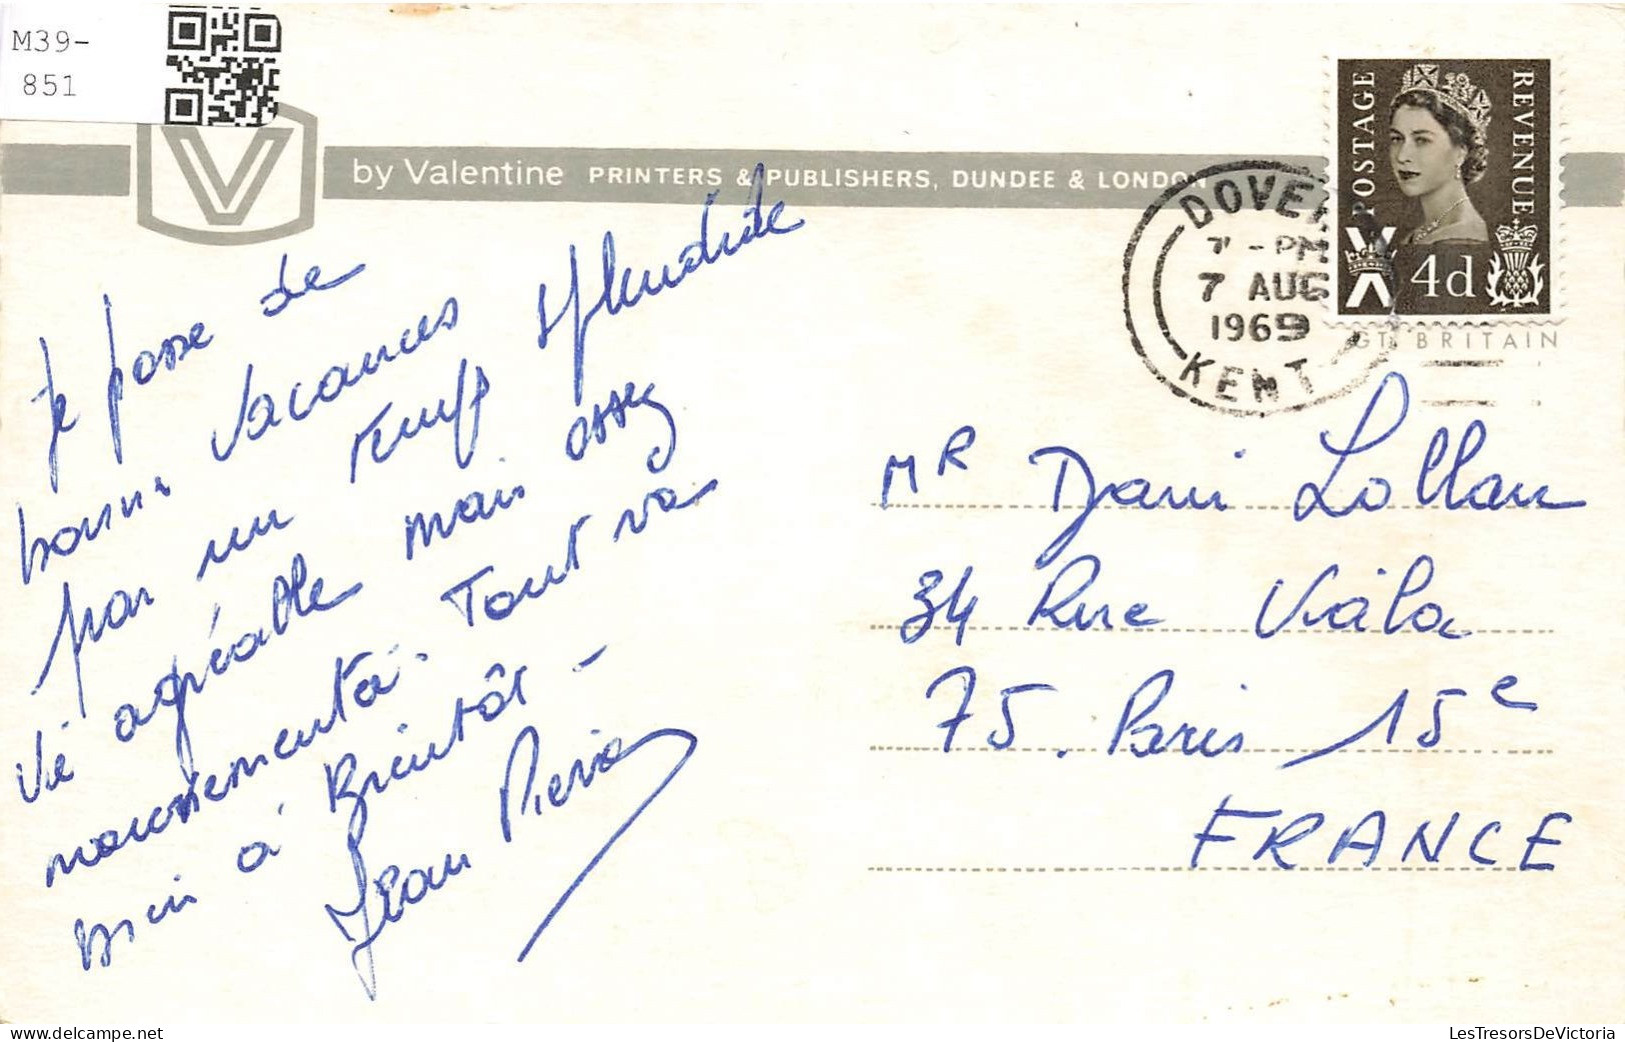 M39-
851
by Valentine PRINTERS & PUBLISHERS, DUNDEE & LONDON
POSTAGE
REVENUE
4d
DOVER
7 - PM
7 AUG
1969
KENT
GT. BRITAIN
Je passe de
bonnes vacances
par un temps splendide
Vie agréable mais assez
mouvementée. Tout va
bien à Bientôt -
Jean Pierre
MR Dani Lollan
34 Rue Viala
75. Paris 15e
FRANCE
LesTresorsDeVictoria
LesTresorsDeVictoria.com